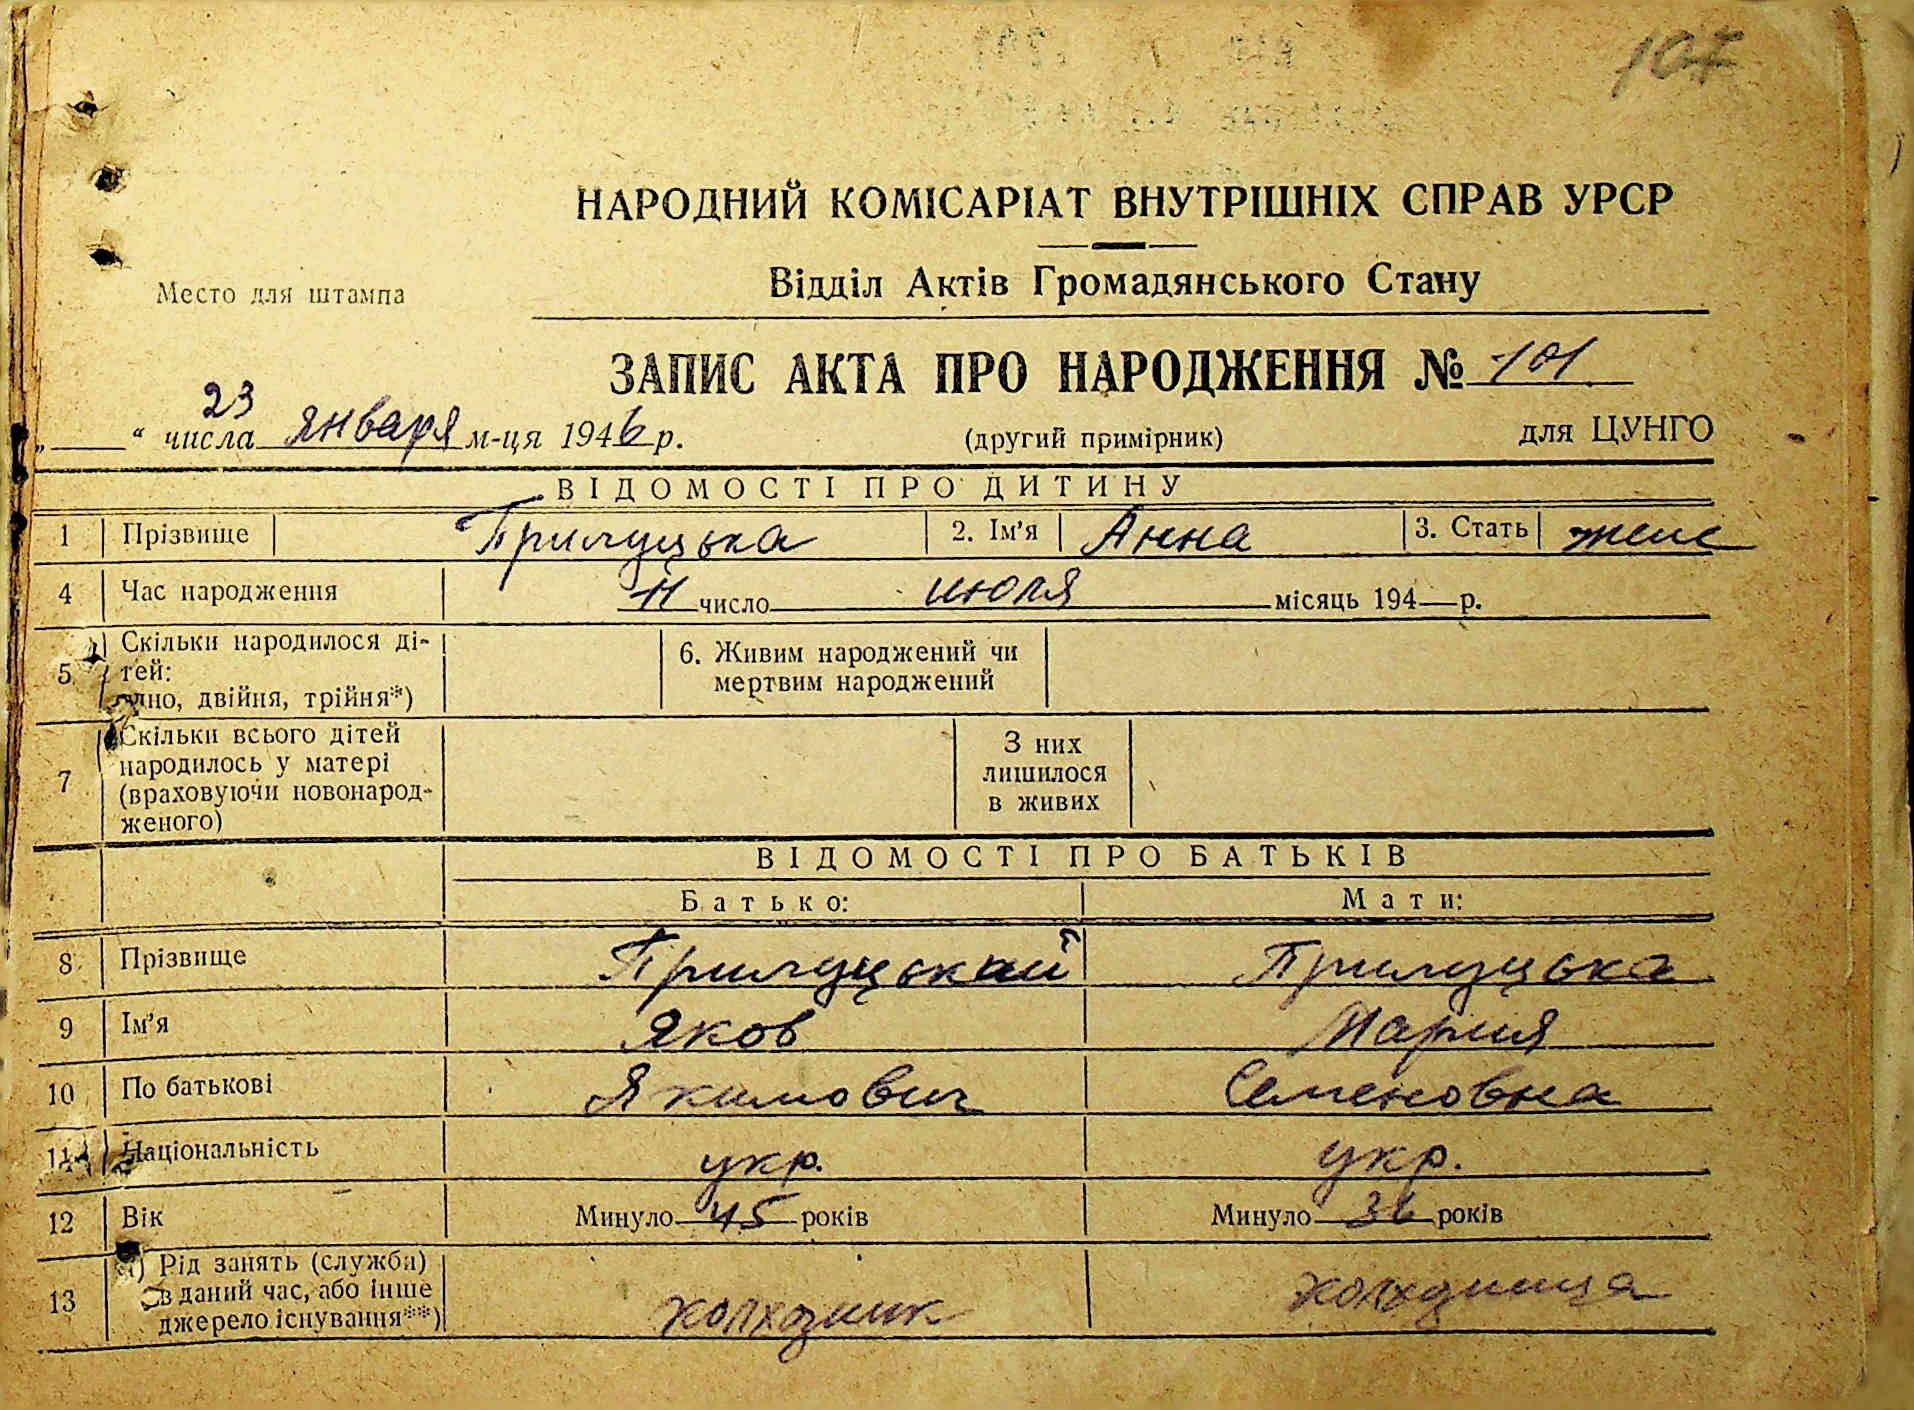 107
НАРОДНИЙ КОМІСАРІАТ ВНУТРІШНІХ СПРАВ УРСР
Место для штампа
Відділ Актів Громадянського Стану
ЗАПИС АКТА ПРО НАРОДЖЕННЯ № 101
„ 23 “ числа января м-ця 1946 р. (другий примірник) для ЦУНГО
ВІДОМОСТІ ПРО ДИТИНУ
1 Прізвище Прилуцька 2. Ім'я Анна 3. Стать женс
4 Час народження 11 число июля місяць 194 р.
5 Скільки народилося ді-
тей:
одно, двійня, трійня*)
6. Живим народжений чи
мертвим народжений
7 Скільки всього дітей
народилось у матері
(враховуючи новонарод-
женого)
З них
лишилося
в живих
ВІДОМОСТІ ПРО БАТЬКІВ
Батько: Мати:
8 Прізвище Прилуцький Прилуцька
9 Ім'я Яков Мария
10 По батькові Якимович Семеновна
11 Національність укр. укр.
12 Вік Минуло 45 років Минуло 36 років
13 а) Рід занять (служби)
в даний час, або інше
джерело існування**)
колхозник колхозница